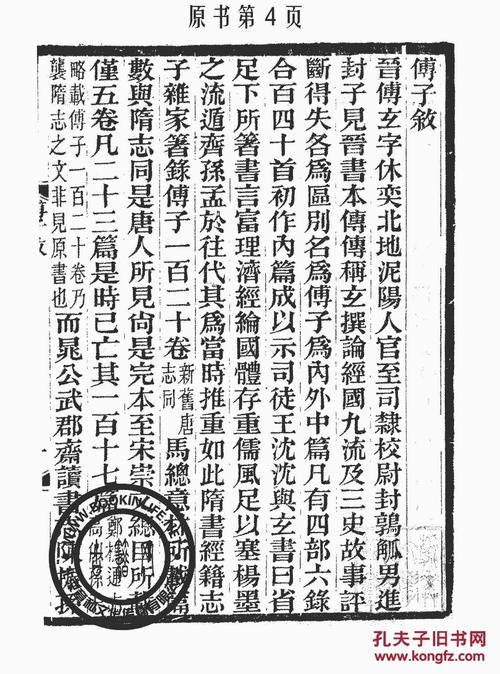 原书第4页
傅子敘
晉傅玄字休奕北地泥陽人官至司隸校尉封鶉觚男進
封子見晉書本傳傳稱玄撰論經國九流及三史故事評
斷得失各爲區別名爲傅子爲內外中篇凡有四部六錄
合百四十首初作內篇成以示司徒王沈沈與玄書曰省
足下所箸書言富理濟經綸國體存重儒風足以塞楊墨
之流遁齊孫孟於往代其爲當時推重如此隋書經籍志
子雜家箸錄傅子一百二十卷新舊唐志同馬總意林所載篇
數與隋志同是唐人所見尙是完本至宋崇總目所
僅五卷凡二十三篇是時已亡其一百十七鄭樵通
略載傅子一百二十卷乃襲隋志之文非見原書也而晁公武郡齋讀書
WWW.BOOKINLIFE.NET
孔夫子旧书网
www.kongfz.com